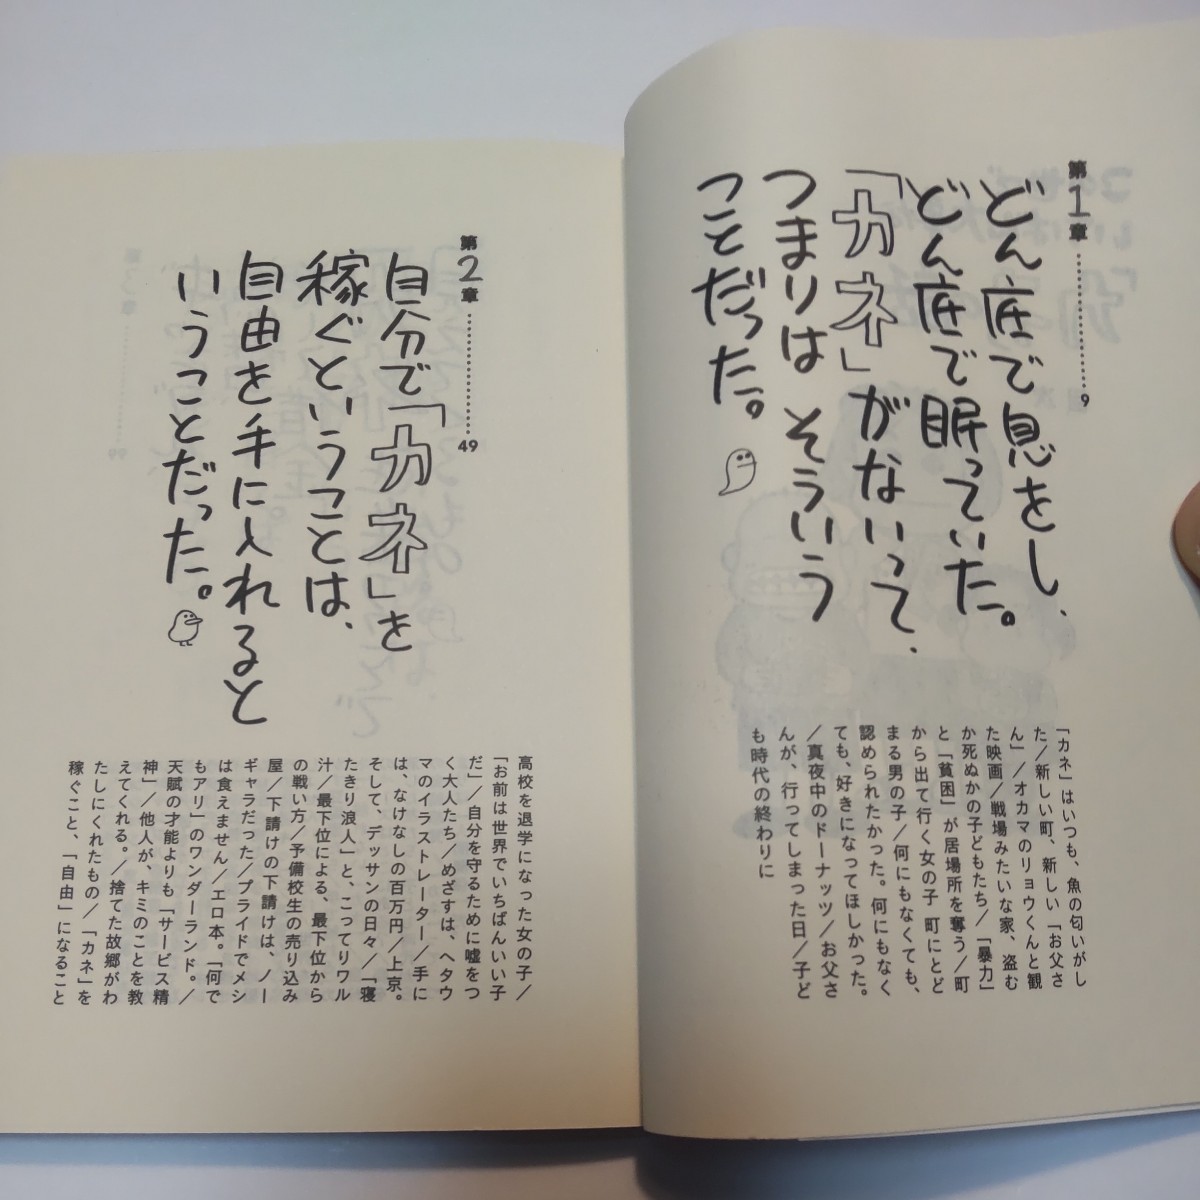 第1章………………9
どん底で息をし、
どん底で眠っていた。
「カネ」がないって、
つまりは そういう
ことだった。
「カネ」はいつも、魚の匂いがし
た/新しい町、新しい「お父さ
ん」/オカマのリョウくんと観
た映画/戦場みたいな家、盗む
か死ぬかの子どもたち/「暴力」
と「貧困」が居場所を奪う/町
から出て行く女の子 町にとど
まる男の子/何にもなくても、
認められたかった。何にもなく
ても、好きになってほしかった。
/真夜中のドーナッツ/お父さ
んが、行ってしまった日/子ど
も時代の終わりに
第2章………………49
自分で「カネ」を
稼ぐということは、
自由を手に入れると
いうことだった。
高校を退学になった女の子/
「お前は世界でいちばんいい子
だ」/自分を守るために嘘をつ
く大人たち/めざすは、ヘタウ
マのイラストレーター/手に
は、なけなしの百万円/上京。
そして、デッサンの日々/「寝
たきり浪人」と、こってりワル
汁/最下位による、最下位から
の戦い方/予備校生の売り込み
屋/下請けの下請けは、ノー
ギャラだった/プライドでメシ
は食えません/エロ本。「何で
もアリ」のワンダーランド。/
天賦の才能よりも「サービス精
神」/他人が、キミのことを教
えてくれる。/捨てた故郷がわ
たしにくれたもの/「カネ」を
稼ぐこと、「自由」になること